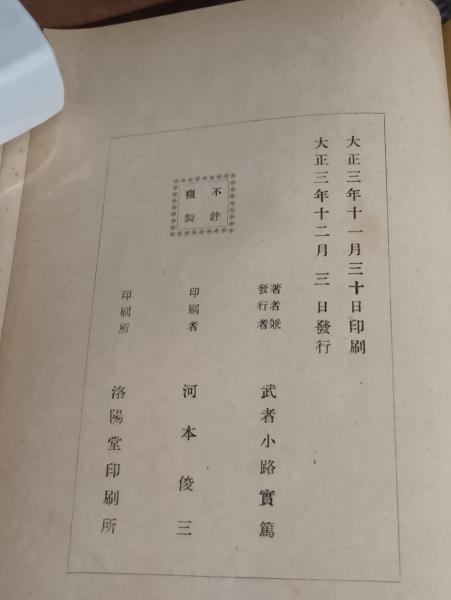 大正三年十一月三十日印刷
大正三年十二月三日發行
不許
複製
著者兼
發行者
武者小路實篤
印刷者
河本俊三
印刷所
洛陽堂印刷所